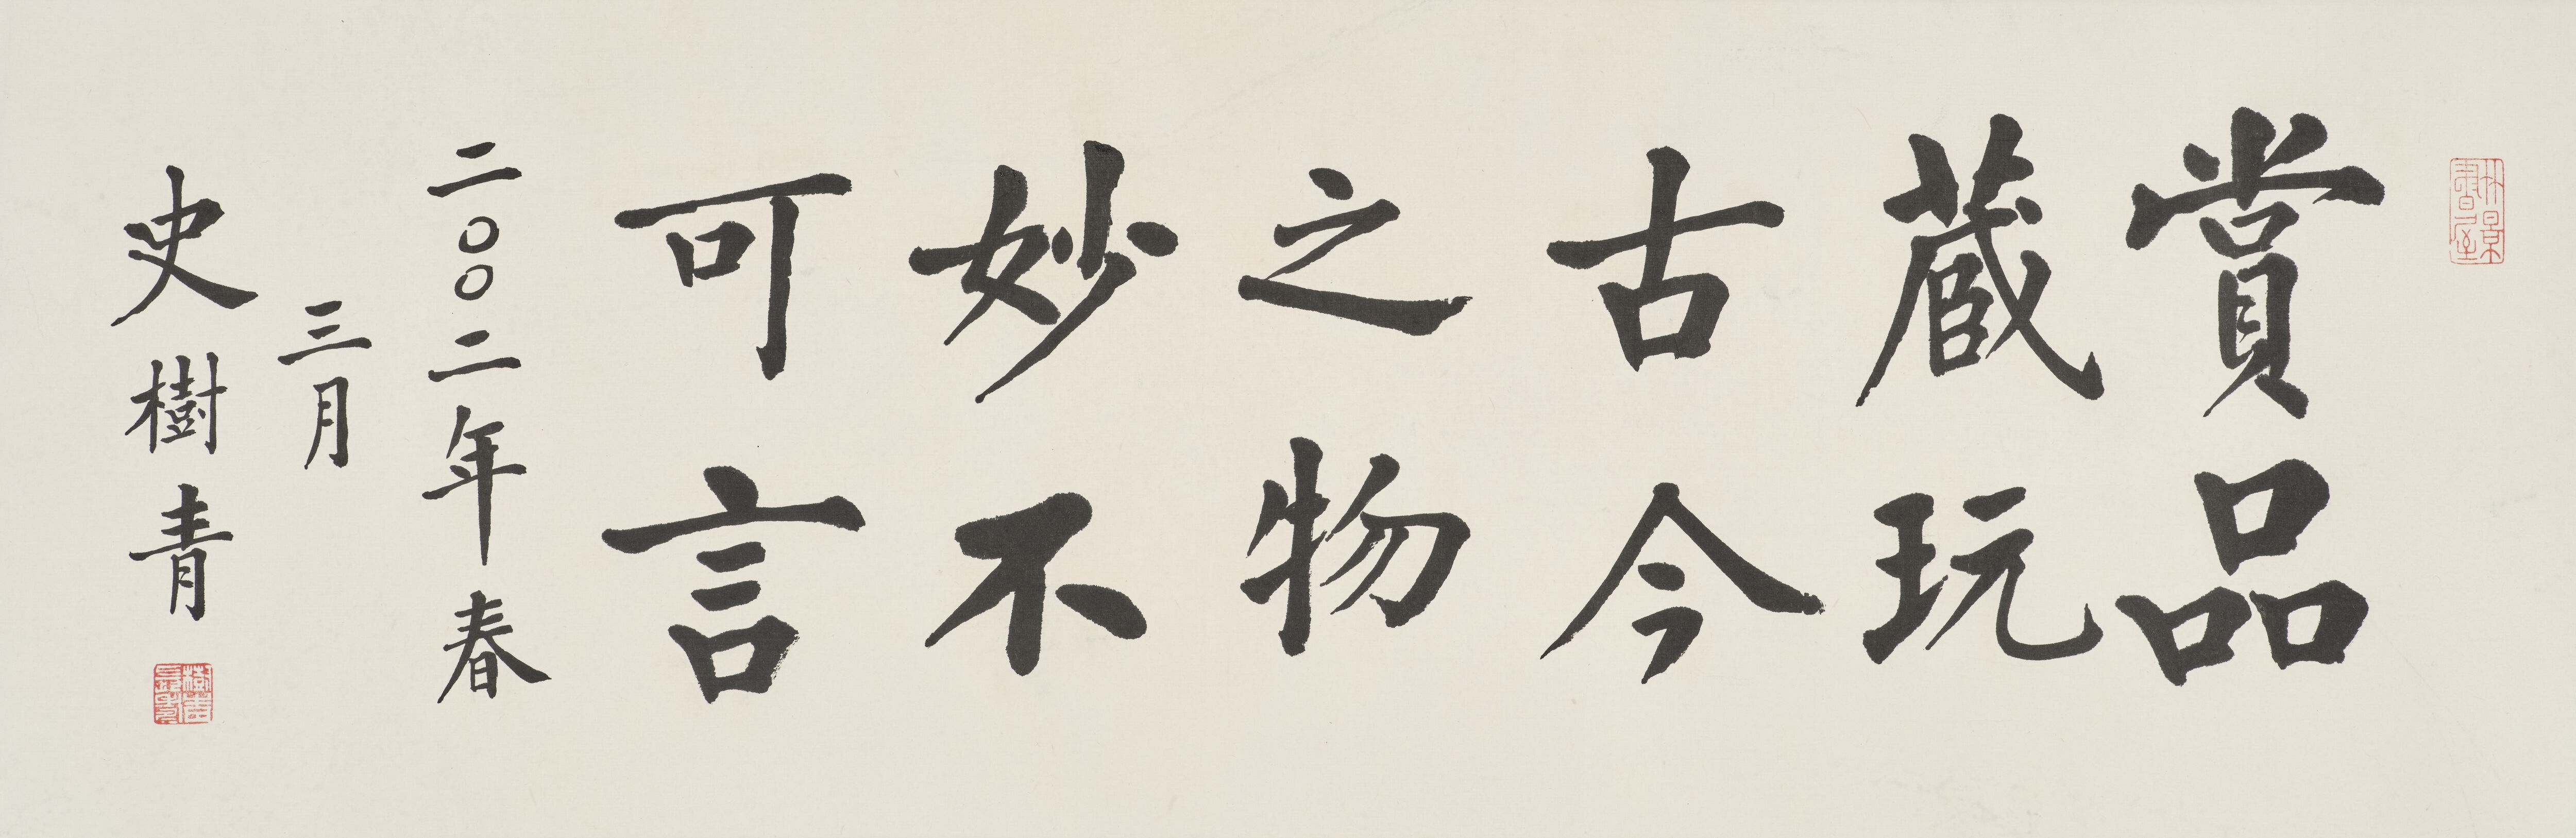 賞品
藏玩
古今
之物
妙不
可言
二〇〇二年春
三月
史樹青
竹景書屋
樹青長壽